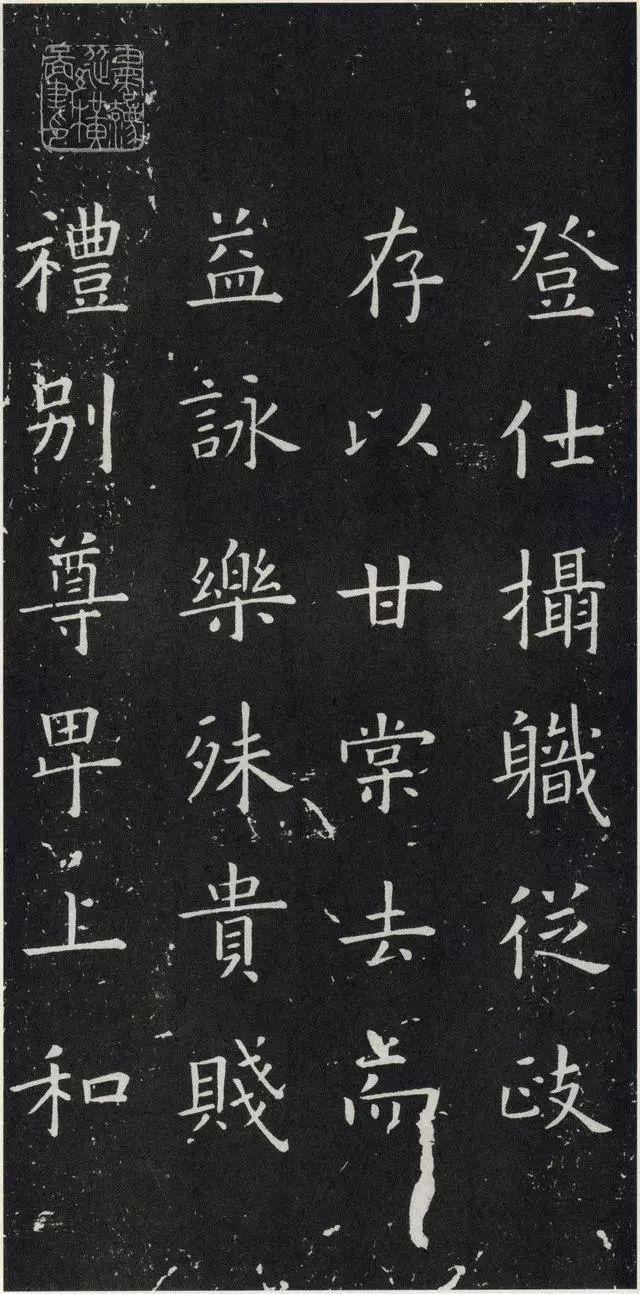 登仕攝職從政
存以甘棠去而
益詠樂殊貴賤
禮別尊卑上和